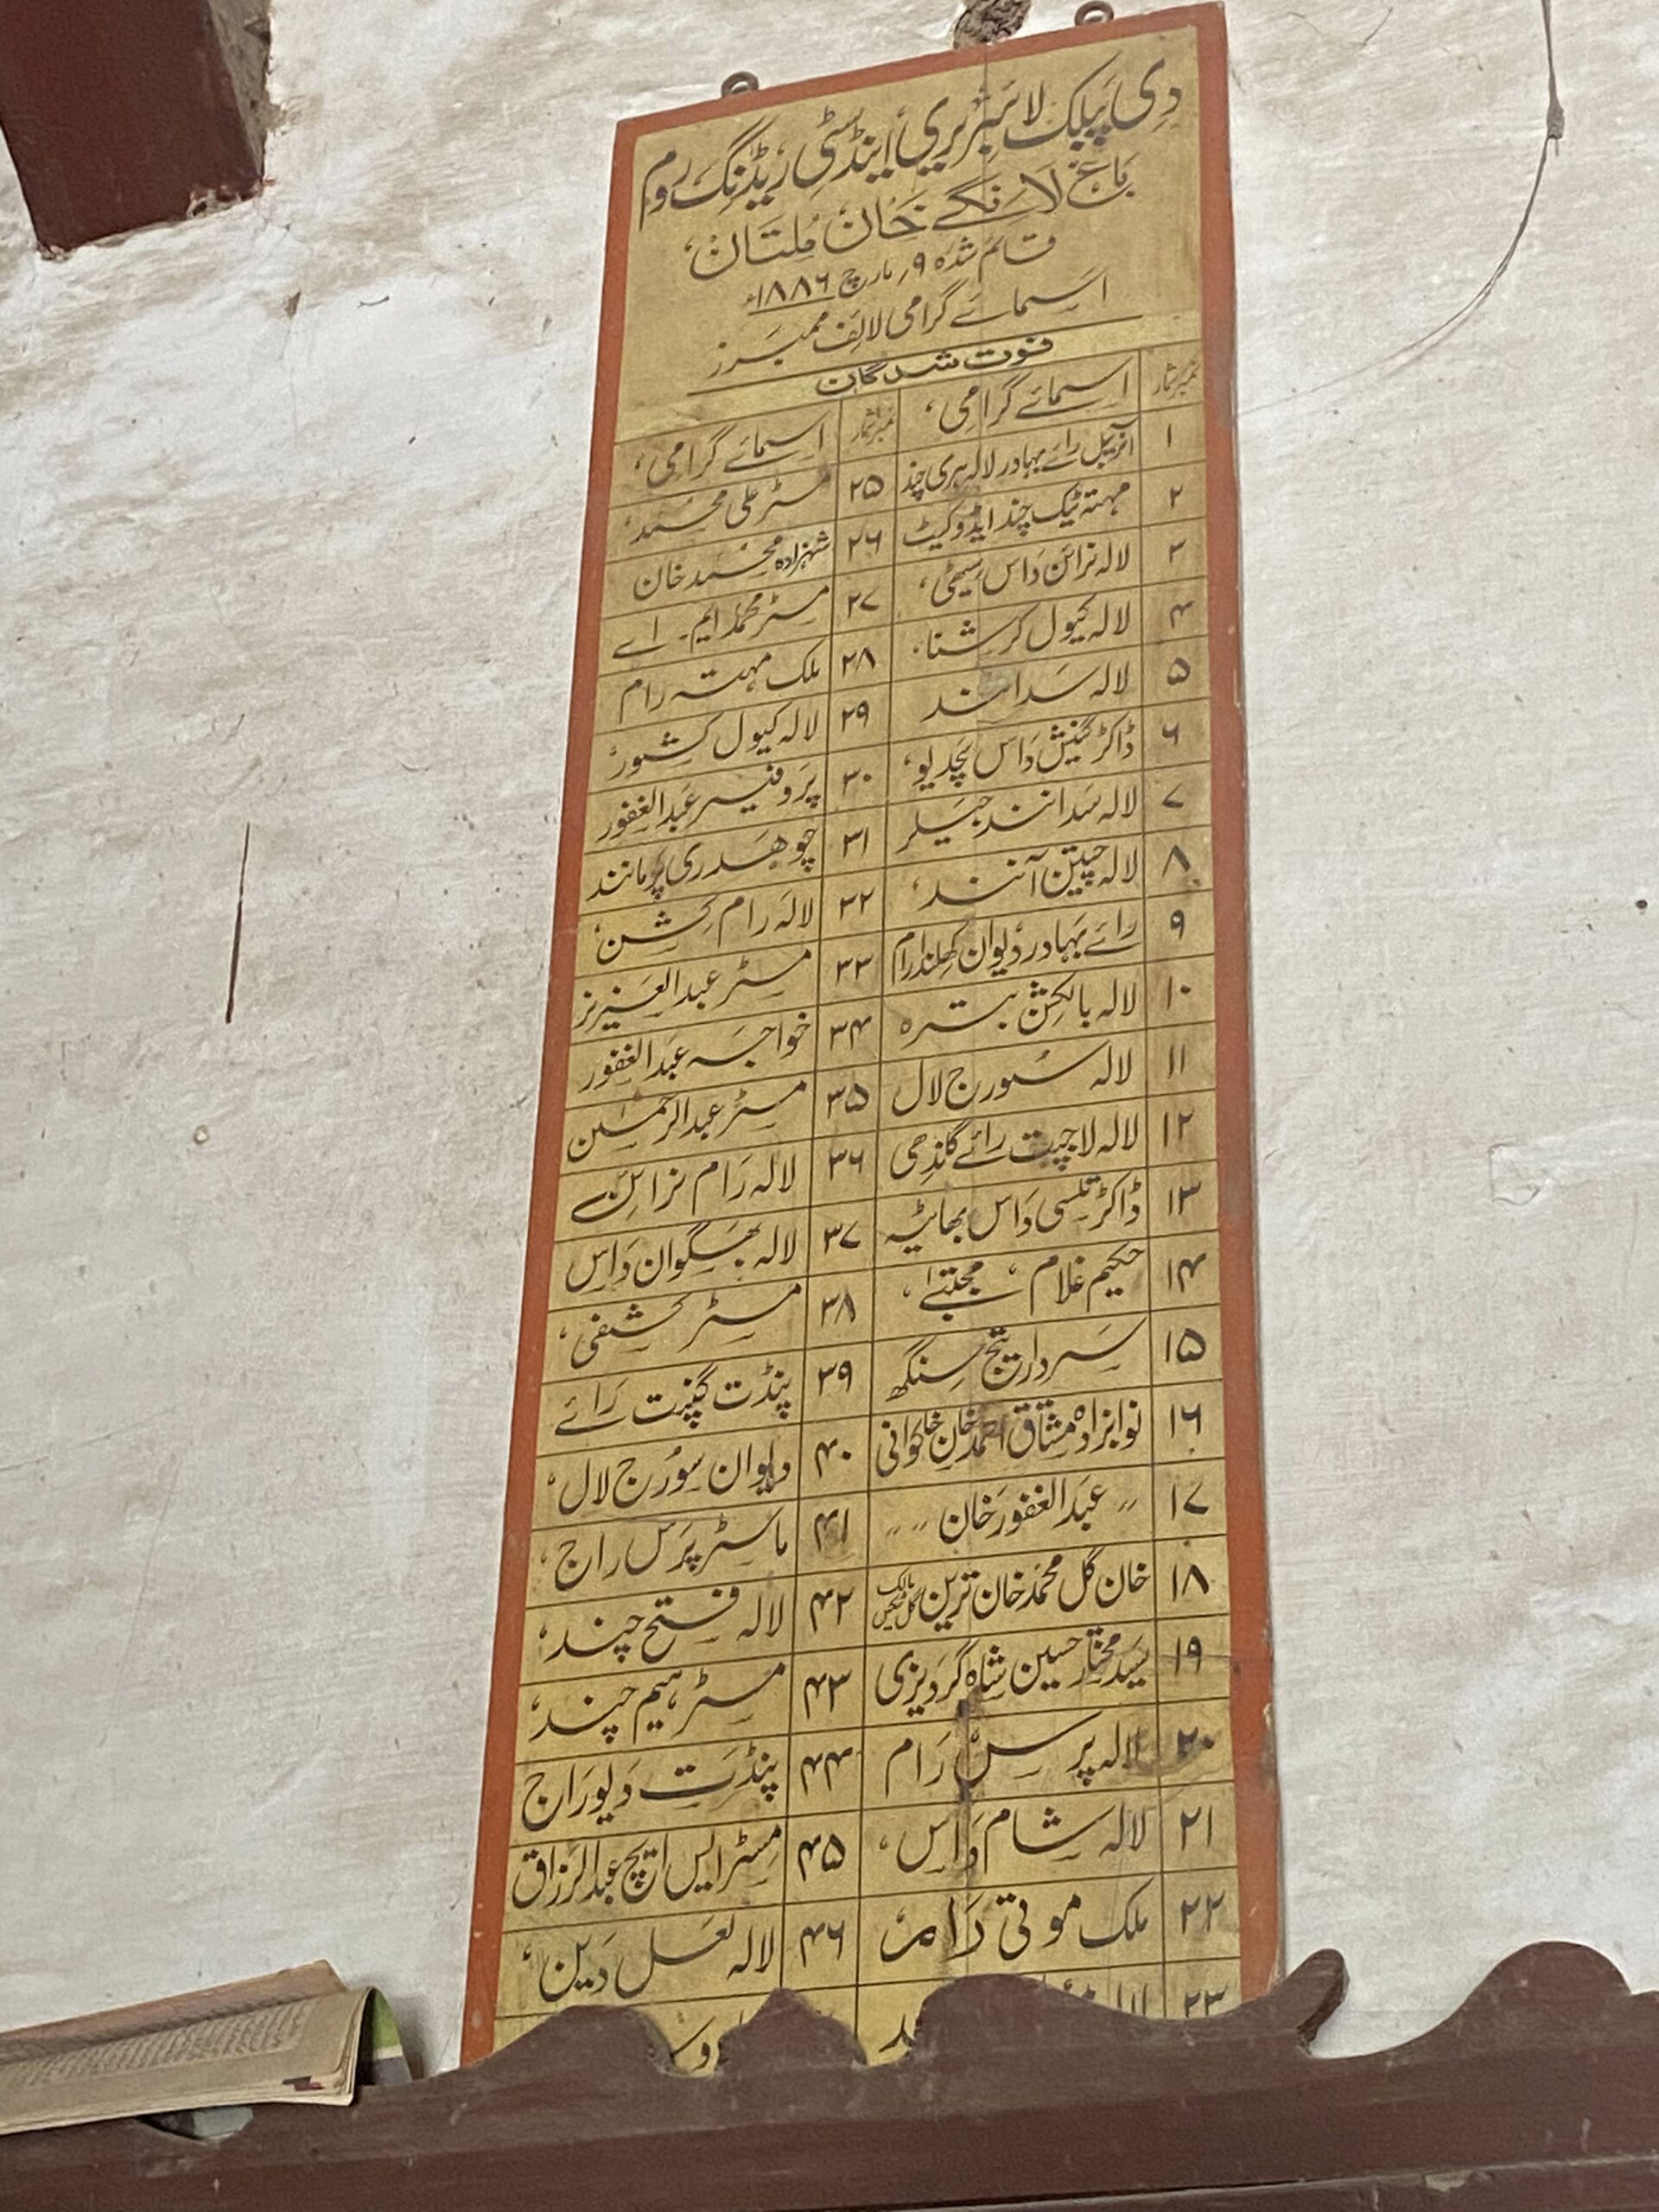 دی پبلک لائبریری اینڈ سٹی ریڈنگ روم
باغ لانگے خان ملتان
قائم شدہ ۹ مارچ ۱۸۸۶ء
اسمائے گرامی لائف ممبرز
فوت شدگان
نمبر شمار اسمائے گرامی نمبر شمار اسمائے گرامی
۱ آنریبل رائے بہادر لالہ ہری چند ۲۵ مسٹر علی محمد
۲ مہتہ ٹیک چند ایڈوکیٹ ۲۶ شہزادہ محمد خان
۳ لالہ نرائن داس سیٹھی ۲۷ مسٹر محمد ایم۔ اے
۴ لالہ کیول کرشنا ۲۸ ملک مہتہ رام
۵ لالہ سدانند ۲۹ لالہ کیول کشور
۶ ڈاکٹر گنیش داس سچدیو ۳۰ پروفیسر عبدالغفور
۷ لالہ سدانند جیلر ۳۱ چوھدری پرمانند
۸ لالہ چیتن آنند ۳۲ لالہ رام کشن
۹ رائے بہادر دیوان کھلندا رام ۳۳ مسٹر عبدالعزیز
۱۰ لالہ بالکشن بترہ ۳۴ خواجہ عبدالغفور
۱۱ لالہ سورج لال ۳۵ مسٹر عبدالرحمٰن
۱۲ لالہ لاجپت رائے گاندھی ۳۶ لالہ رام نرائن
۱۳ ڈاکٹر تلسی داس بھاٹیہ ۳۷ لالہ بھگوان داس
۱۴ حکیم غلام مجتبےٰ ۳۸ مسٹر کشفی
۱۵ سردار تیج سنگھ ۳۹ پنڈت گنپت رائے
۱۶ نوابزادہ مشتاق احمد خان خاکوانی ۴۰ دیوان سورج لال
۱۷ 〃 عبدالغفور خان 〃 〃 ۴۱ ماسٹر پرس راج
۱۸ خان گل محمد خان ترین مالک ۴۲ لالہ فتح چند
۱۹ سید مختار حسین شاہ گردیزی ۴۳ مسٹر ہیم چند
۲۰ لالہ پرس رام ۴۴ پنڈت دیوراج
۲۱ لالہ شام داس ۴۵ مسٹر ایس ایچ عبدالرزاق
۲۲ ملک موتی رام ۴۶ لالہ لعل دین
۲۳